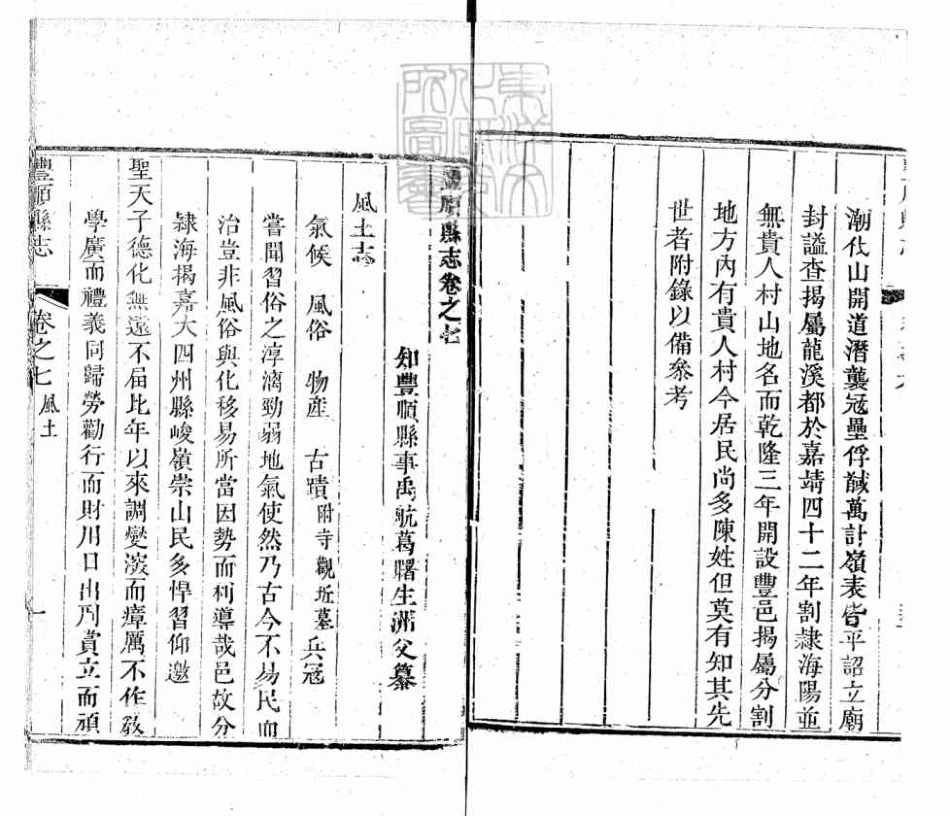 潮伐山開道潛襲冦壘俘馘萬計嶺表皆平詔立廟
封謚查揭屬龍溪都於嘉靖四十二年割隷海陽並
無貴人村山地名而乾隆三年開設豐邑揭屬分割
地方內有貴人村今居民尚多陳姓但莫有知其先
世者附錄以備叅考
豐順縣志卷之七
知豐順縣事禹航葛曙生洲父纂
風土志
氣候 風俗 物産 古蹟附寺觀坵墓 兵冦
嘗聞習俗之淳漓勁弱地氣使然乃古今不易民而
治豈非風俗與化移易所當因勢而利導哉邑故分
隷海揭嘉大四州縣峻嶺崇山民多悍習仰邀
聖天子德化無遠不届比年以來調燮淡而瘴厲不作敎
學廣而禮義同歸勞勸行而財用日出刑賞立而頑
豐順縣志 卷之七 風土 一